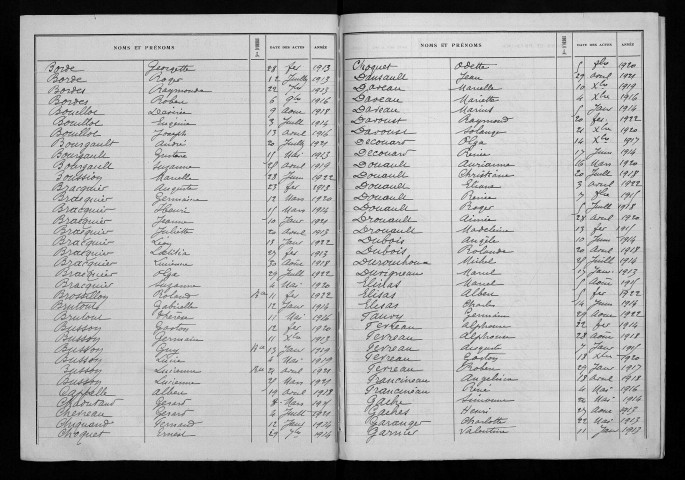 NOMS ET PRÉNOMS DATE DES ACTES ANNÉE
Borde Georgette 28 fev 1913
Borde Roger 12 Juillet 1913
Bordes Raymonde 1913
Bordes Robert 6 1916
Bouillot 9 Aout 1918
Bouillot Eugénie 3 Juill 1914
Bouillot Joseph 13 avril 1916
Bourgault André 20 Juillet 1921
Bourgault Gustave 15 Mai 1913
Bourgault Suzanne avril 1919
Boussion Marcelle 28 Juin 1922
Bracquier Auguste 23 fev 1918
Bracquier Germaine 12 Mars 1920
Bracquier Henri 15 Mars 1914
Bracquier Jeanne 10 Janv 1921
Bracquier Juliette 20 avril 1913
Bracquier Léon 18 Janv 1922
Bracquier Laetitia 27 fev 1913
Bracquier Lucienne 30 Août 1918
Bracquier Olga 29 Juill 1922
Bracquier Suzanne 4 Mai 1920
Brossillon Roland 11 fev 1922
Brutout Gabrielle 12 Janv 1914
Brutout Thérèse 11 Mai 1914
Busson Gaston 12 fev 1920
Busson Germain 11 Xbre 1913
Busson Guy 13 Janv 1919
Busson Lucie 5 Mai 1913
Busson Lucienne 21 avril 1921
Busson Lucienne 21 Mars 1921
Cappelle Albert 19 avril 1918
Chaoutaud Gérard 8 Mars 1921
Chereau Gérard 4 Juill 1921
Chignard Fernand 12 Janv 1914
Choquet Ernest 29 7bre 1914
NOMS ET PRÉNOMS DATE DES ACTES ANNÉE
Croquet Odette 1920
Dansault Jean 29 avril 1921
Daveau Marcelle 10 Xbre 1919
Daveau Mariette 4 Xbre 1916
Daveau Marius Janv 1914
Davoust Raymond 20 fev 1922
Davoust Solange 21 Xbre 1920
Decouard Olga 14 Xbre 1917
Decouard Renée 17 Juin 1914
Douault Adrianne 16 Mars 1920
Douault Christiane 20 Juill 1918
Douault Eliane 3 avril 1922
Douault Renée 7 1915
Douault Roger Juill 1918
Drouault Aimée 28 avril 1920
Drouault Madeleine 13 fev 1915
Dubois Angèle 10 Juin 1914
Dubois Rolande 20 avril 1918
Durouchoux Michel Juill 1914
Duvigneau Marcel 17 Janv 1913
Elisas Marcel Août 1915
Elisas Albert fev 1922
Elisas Charles 4 Juin 1914
Faury Germain 29 Aout 1922
Ferreau Alphonse 22 fev 1914
Ferreau Alphonse 28 Août 1918
Ferreau August 7 Janv 1915
Ferreau Gaston 18 Xbre 1920
Ferreau Robert 29 Janv 1917
Francineau Angelina 18 Avril 1918
Francineau René 4 Mai 1916
Gache Simonne 22 Mai 1914
Gaches Henri 27 Aout 1913
Garanger Charlotte 22 Mai 1913
Garnier Valentine 11 Janv 1913